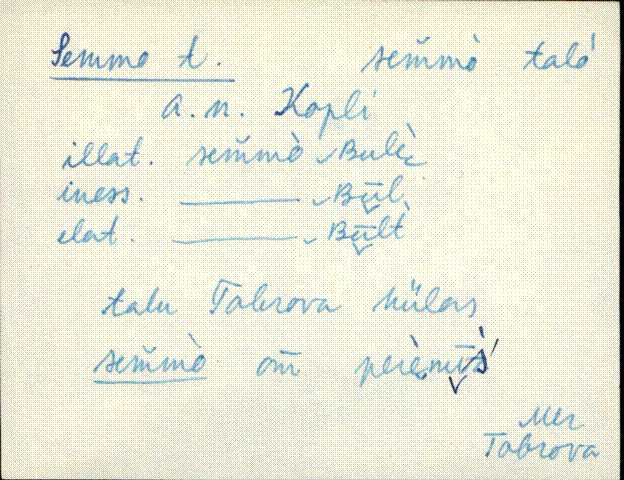 Semmo t. sem̆mò talò
a. n. Kopli
illat. sem̆mò Bulè
iness. ——— Būl
elat. ——— Būlt
talu Tabrova külas
sem̆mò om̄
Mer
Tabrova